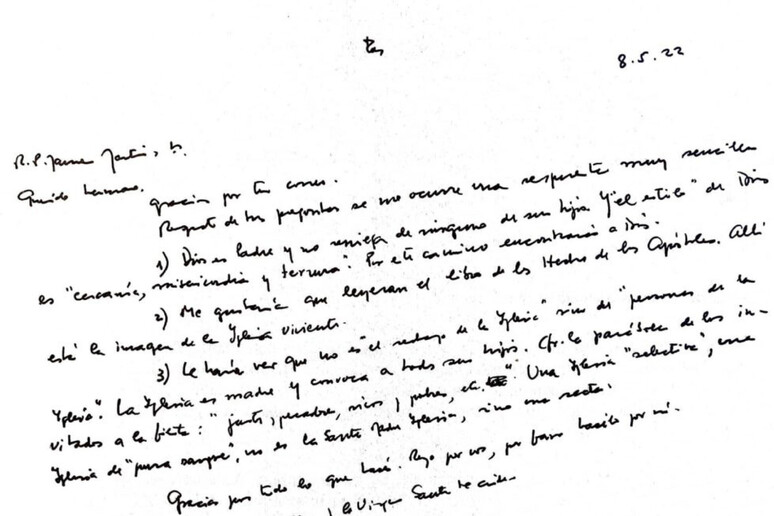 8.5.22
R.P. James Martin, s.
Querido hermano.
gracias por tu correo.
Respecto de tus preguntas se me ocurre una respuesta muy sencilla
1) Dios es Padre y no reniega de ninguno de sus hijos. Y "el estilo" de Dios
es "cercanía, misericordia y ternura". Por este camino encontrarás a Dios.
2) Me gustaría que leyeran el libro de los Hechos de los Apóstoles. Allí
está la imagen de la Iglesia viviente.
3) Le haría ver que no es "el rechazo de la Iglesia" sino de "personas de la
Iglesia". La Iglesia es madre y convoca a todos sus hijos. Cfr. la parábola de los in-
vitados a la fiesta: "justos, pecadores, ricos y pobres, etc." Una Iglesia "selectiva", una
Iglesia de "pura sangre", no es la Santa Madre Iglesia, sino una secta.
Gracias por todo lo que hacés. Rezo por vos, por favor hacelo por mí.
y la Virgen Santa te cuide.